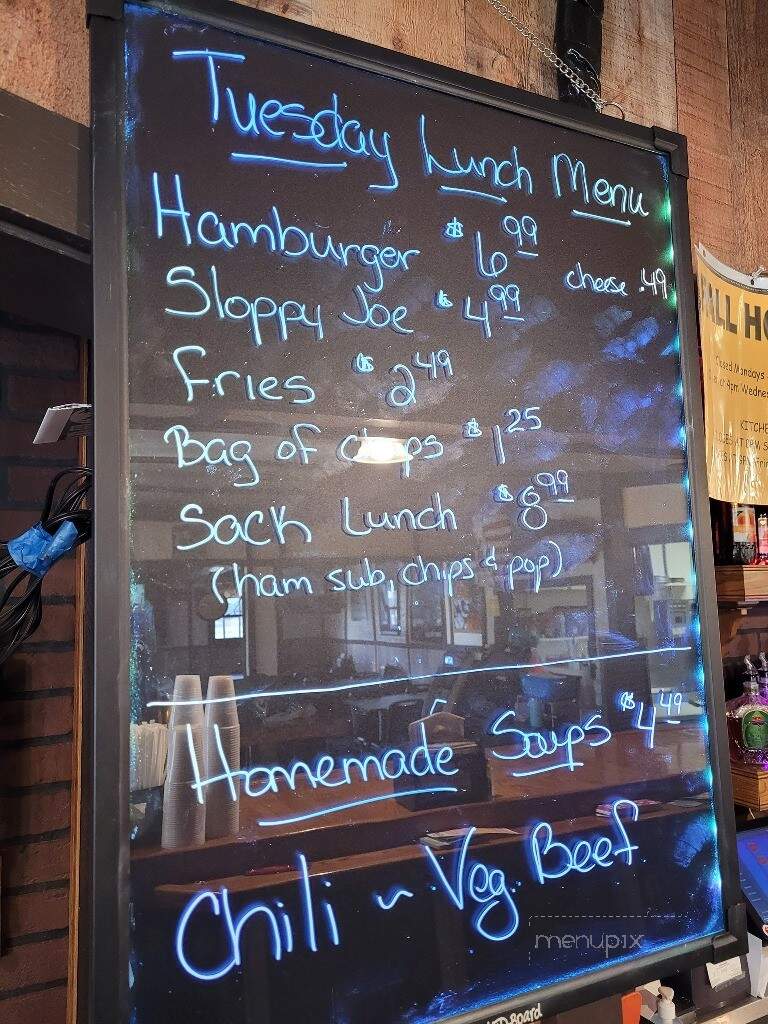 Tuesday Lunch Menu
Hamburger $6.99
cheese .49
Sloppy Joe $4.99
Fries $2.49
Bag of chips $1.25
Sack Lunch $8.99
(ham sub, chips & pop)
Homemade Soups $4.49
Chili ~ Veg. Beef
menupix
Board
Closed Mondays
KITCHE